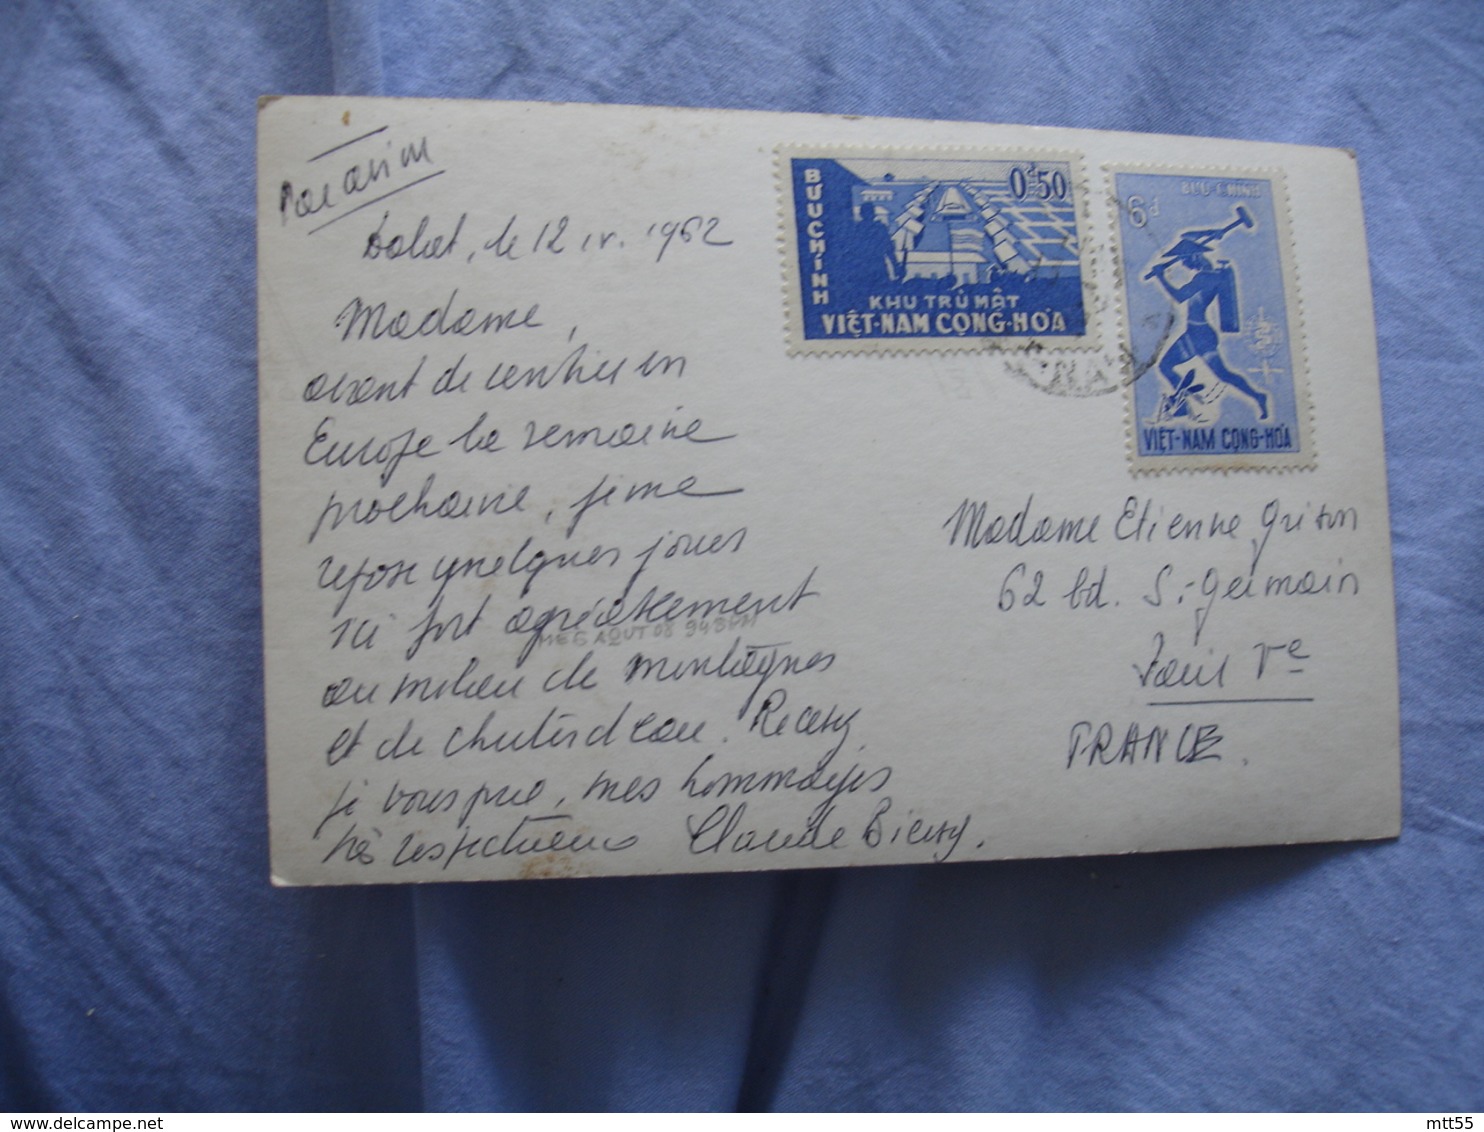 Par avion
Dalat, le 12 IV. 1962
Madame,
avant de rentrer en
Europe la semaine
prochaine, je me
repose quelques jours
ici fort agréablement
au milieu de montagnes
et de chutes d'eau. Recevez
je vous prie, mes hommages
très respectueux Claude
BƯU CHÍNH
0đ50
KHU TRÙ MẬT
VIỆT-NAM CỘNG-HÒA
6đ
BƯU-CHÍNH
VIỆT-NAM CỘNG-HÒA
Madame Etienne Grison
62 bd. S. Germain
Paris Ve
FRANCE.
mtt55